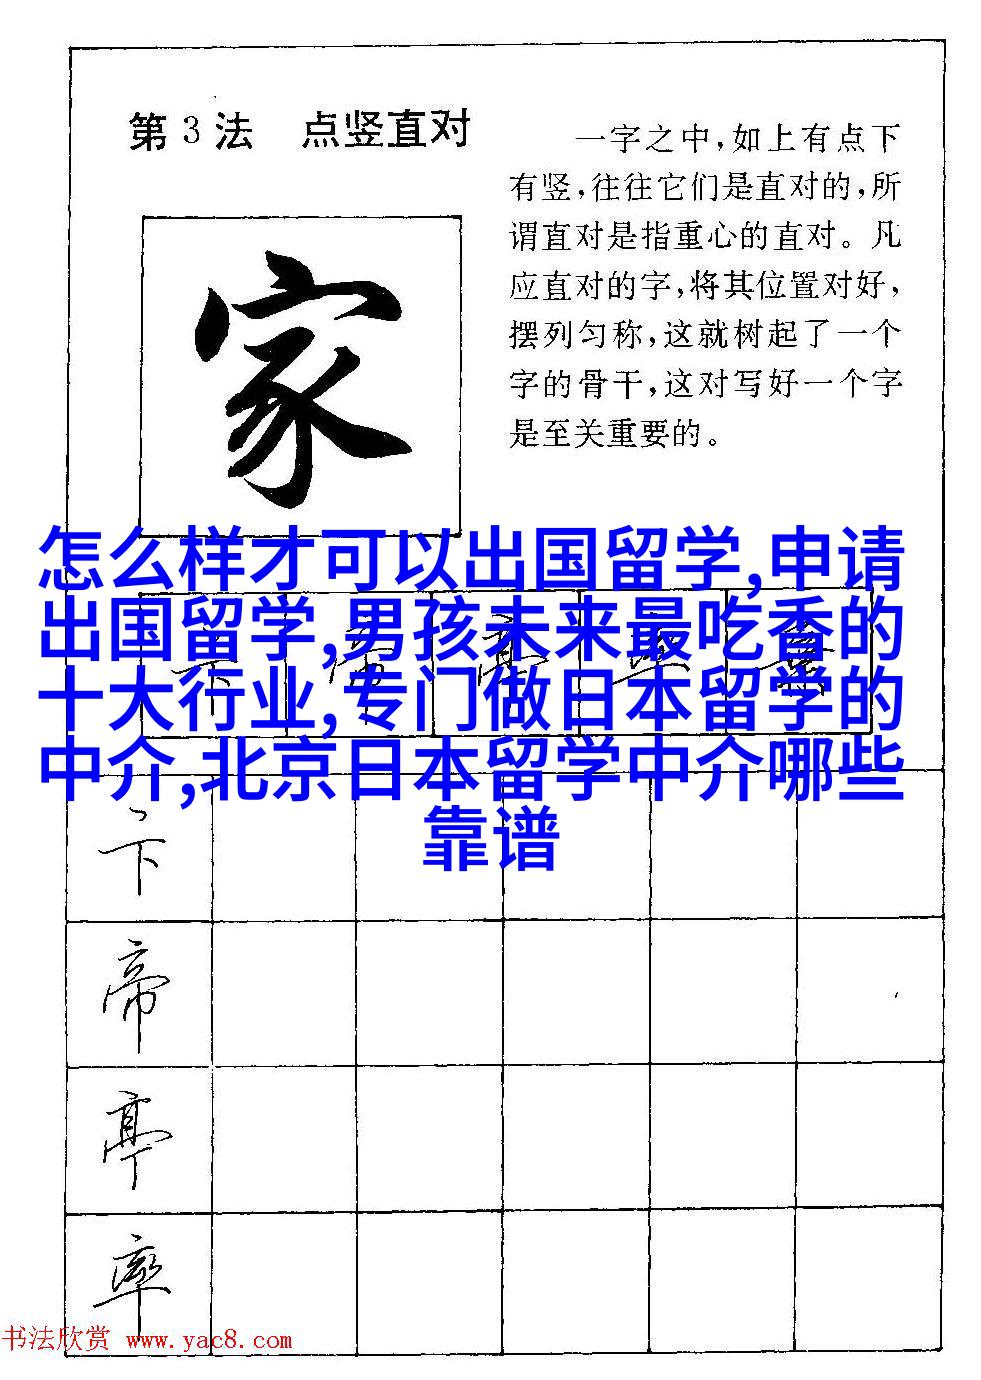 第3法 点竖直对
一字之中,如上有点下
有竖,往往它们是直对的,所
谓直对是指重心的直对。凡
应直对的字,将其位置对好,
摆列匀称,这就树起了一个
字的骨干,这对写好一个字
是至关重要的。
家
怎么样才可以出国留学,申请
出国留学,男孩未来最吃香的
十大行业,专门做日本留学的
中介,北京日本留学中介哪些
靠谱
卞
帝
亭
率
书法欣赏 www.yac8.com